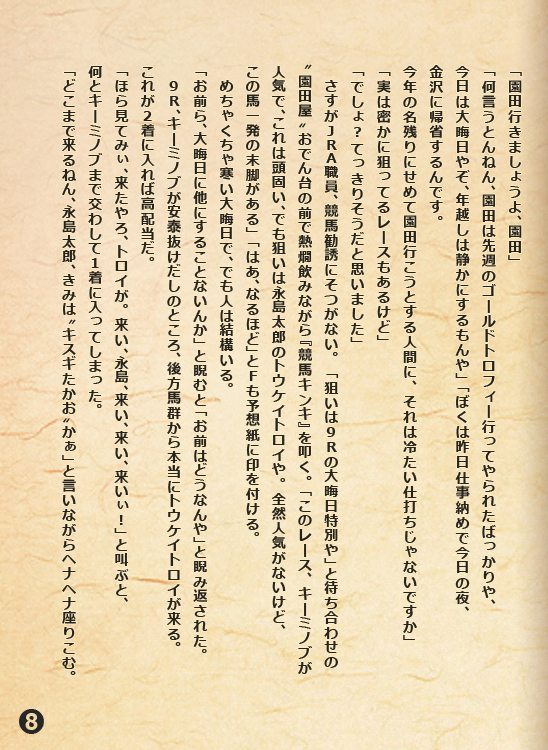 「園田行きましょうよ、園田」
「何言うとんねん、園田は先週のゴールドトロフィー行ってやられたばっかりや、
今日は大晦日やぞ、年越しは静かにするもんや」「ぼくは昨日仕事納めで今日の夜、
金沢に帰省するんです。
今年の名残りにせめて園田行こうとする人間に、それは冷たい仕打ちじゃないですか」
「実は密かに狙ってるレースもあるけど」
「でしょ？てっきりそうだと思いました」
さすがJRA職員、競馬勧誘にそつがない。「狙いは9Rの大晦日特別や」と待ち合わせの
〝園田屋〟おでん台の前で熱燗飲みながら『競馬キンキ』を叩く。「このレース、キーミノブが
人気で、これは頭固い、でも狙いは永島太郎のトウケイトロイや。全然人気がないけど、
この馬一発の末脚がある」「はあ、なるほど」とFも予想紙に印を付ける。
めちゃくちゃ寒い大晦日で、でも人は結構いる。
「お前ら、大晦日に他にすることないんか」と睨むと「お前はどうなんや」と睨み返された。
9R、キーミノブが安泰抜けだしのところ、後方馬群から本当にトウケイトロイが来る。
これが2着に入れば高配当だ。
「ほら見てみぃ、来たやろ、トロイが。来い、永島、来い、来い、来いぃ！」と叫ぶと、
何とキーミノブまで交わして1着に入ってしまった。
「どこまで来るねん、永島太郎、きみは〝キスギたかお〟かぁ」と言いながらヘナヘナ座りこむ。
8